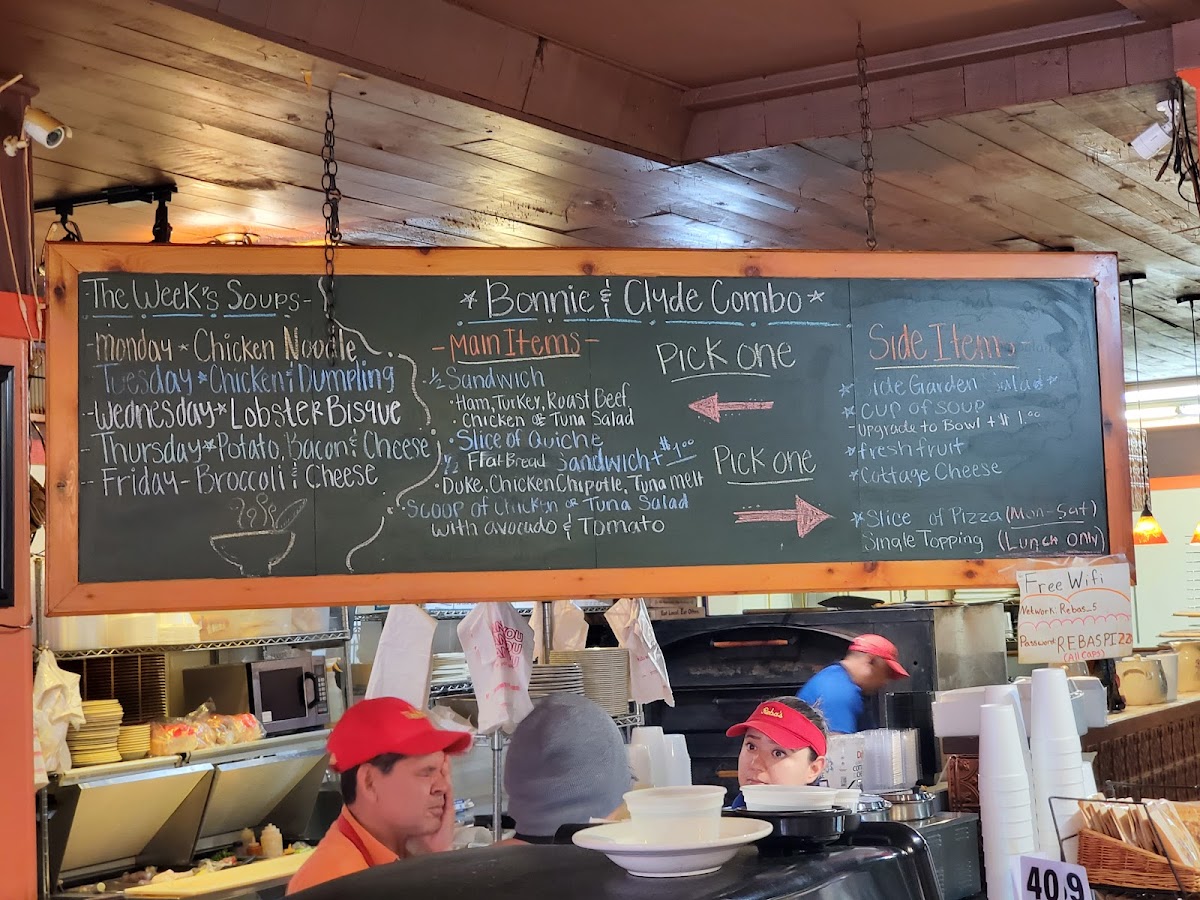 -The Week's Soups-
-monday * Chicken Noodle
Tuesday * Chicken & Dumpling
-Wednesday * Lobster Bisque
-Thursday * Potato, Bacon & Cheese
- Friday - Broccoli & Cheese
* Bonnie & Clyde Combo *
- Main Items -
½ Sandwich
• Ham, Turkey, Roast Beef
• Chicken or Tuna Salad
• Slice of Quiche
½ Flat Bread Sandwich + $1.00
• Duke, Chicken Chipotle, Tuna melt
• Scoop of Chicken or Tuna Salad
with avocado & Tomato
Pick one
Pick one
Side Items -
* Side Garden Salad *
* cup of soup
- Upgrade to Bowl + $1.00
* fresh fruit
* Cottage Cheese
* Slice of Pizza (Mon-Sat)
Single Topping (Lunch Only)
Free Wifi
Network: Rebas_5
Password: REBASPIZZ
(All Caps)
Reba's
40 9